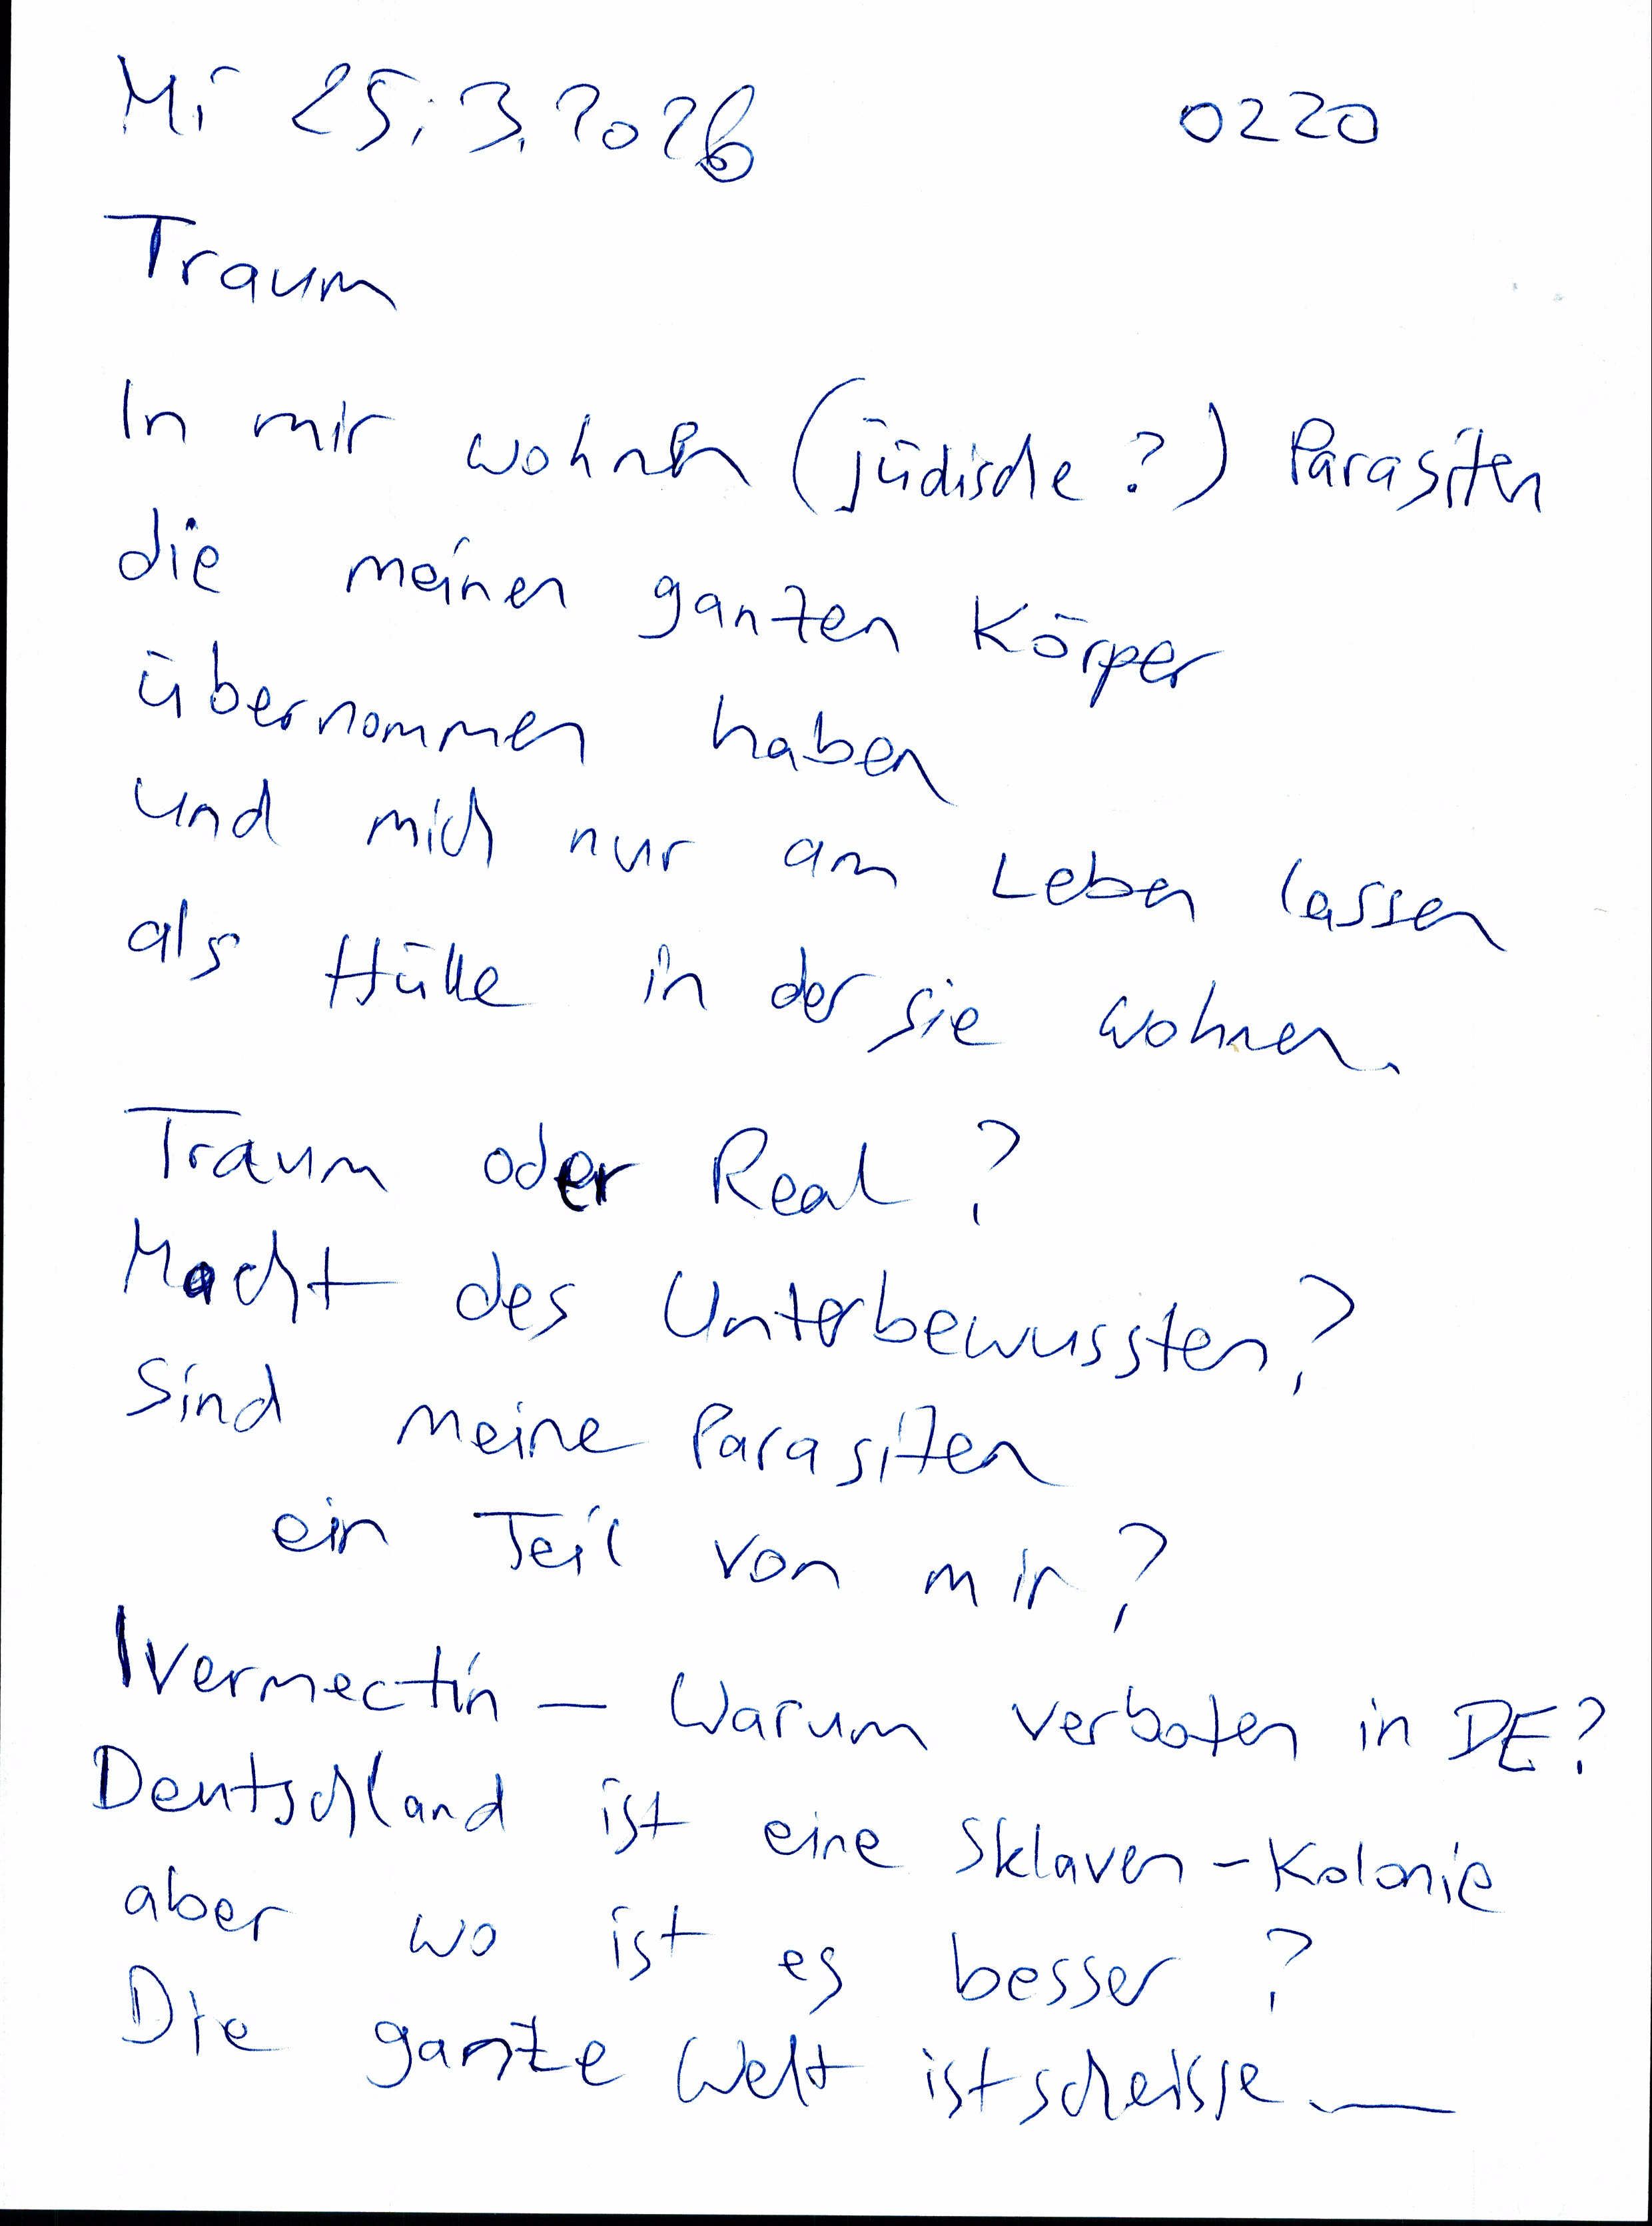 Mi 25.3.2026 0220
Traum
In mir wohnen (jüdische?) Parasiten
die meinen ganzen Körper
übernommen haben
und mich nur am Leben lassen
als Hülle in der sie wohnen.
Traum oder Real?
Macht des Unterbewussten?
Sind meine Parasiten
ein Teil von mir?
Ivermectin — Warum verboten in DE?
Deutschland ist eine Sklaven-Kolonie
aber wo ist es besser?
Die ganze Welt ist scheisse